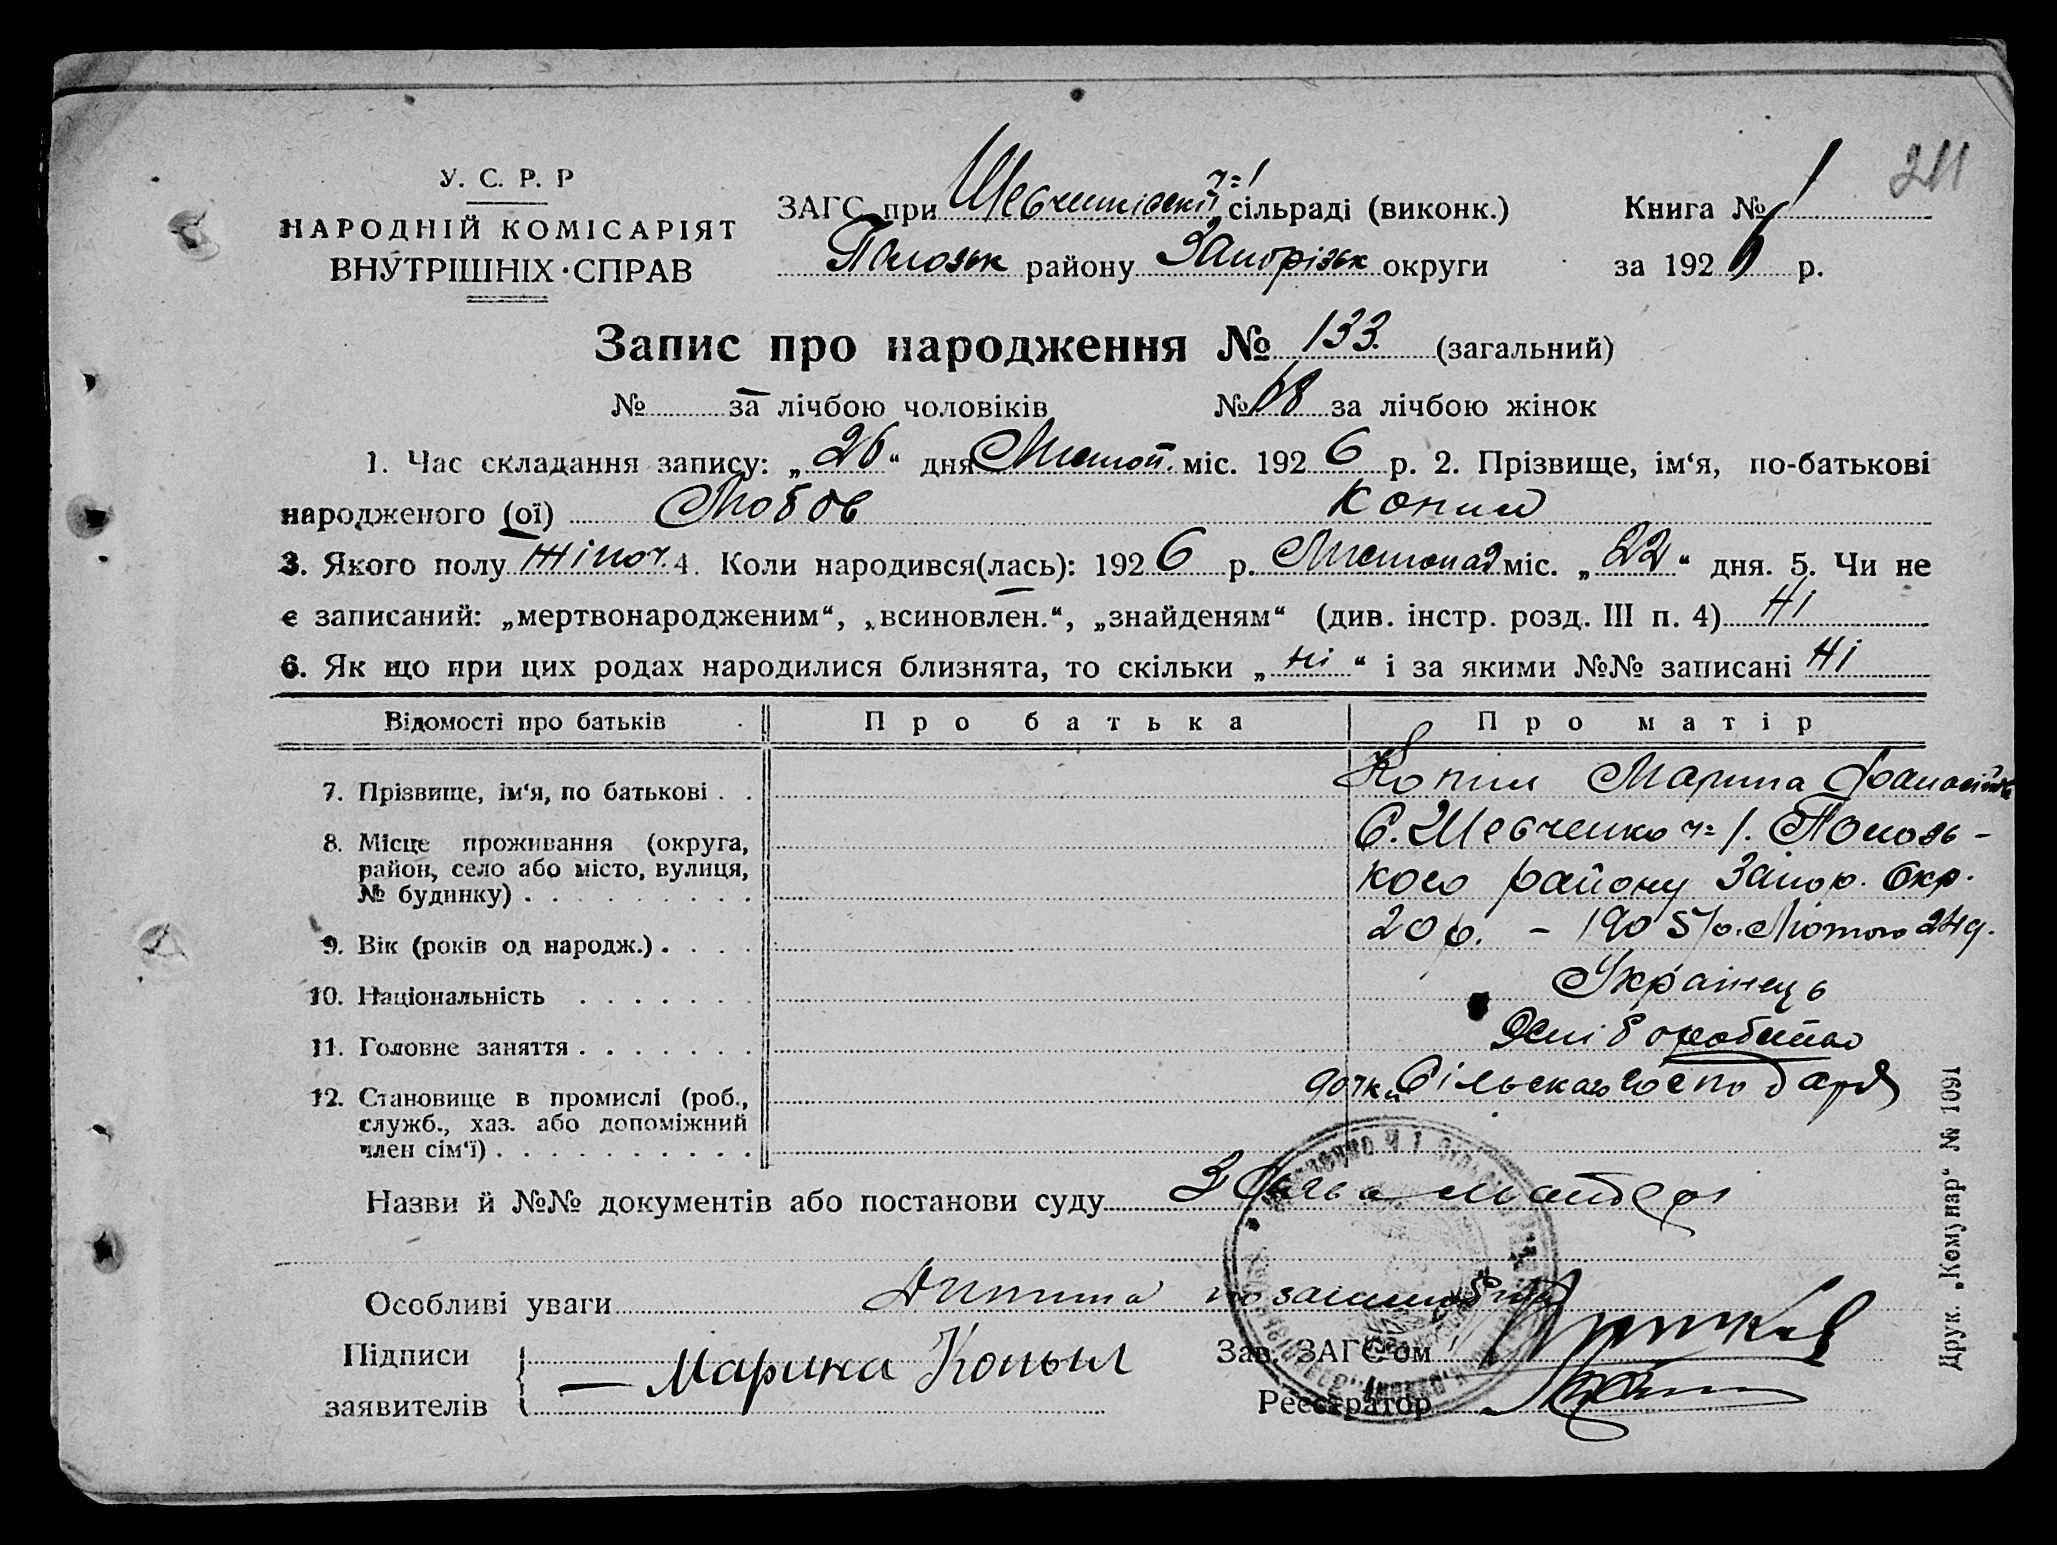 211
У. С. Р. Р
НАРОДНІЙ КОМІСАРІЯТ
ВНУТРІШНІХ СПРАВ
ЗАГС при Шевченківскій ч=1 сільраді (виконк.)
Полозьк району Запорізьк округи
Книга № 1
за 1926 р.
Запис про народження № 133. (загальний)
№ за лічбою чоловіків № 68 за лічбою жінок
1. Час складання запису: „26“ дня Листоп. міс. 1926 р. 2. Прізвище, ім‘я, по-батькові
народженого (ої) Любов Копил
3. Якого полу Жіноч. 4. Коли народився(лась): 1926 р. Листопад міс. „22“ дня. 5. Чи не
є записаний: „мертвонародженим“, „всиновлен.“, „знайденям“ (див. інстр. розд. III п. 4) Ні
6. Як що при цих родах народилися близнята, то скільки „ні“ і за якими №№ записані Ні
Відомості про батьків Про батька Про матір
7. Прізвище, ім‘я, по батькові . . Копил Марина
8. Місце проживання (округа, район, село або місто, вулиця, № будинку) . . . . . . . . . С. Шевченко ч= 1. Полозь-
кого району Запор. Окр.
9. Вік (років од народж.) . . . . 20 р. – 1905 р. Лютого 24 д.
10. Національність . . . . . . . Українець
11. Головне заняття . . . . . . . Хліборобство
12. Становище в промислі (роб., служб., хаз. або допоміжний член сім‘ї) . . . . . . . . . . дочка Сільского господаря
Назви й №№ документів або постанови суду З слів матері
Особливі уваги Дитина позашлюбна
Підписи
заявителів
— Марина Копыл
Зав. ЗАГС‘ом
Реєстратор
Друк. „Комунар“ № 1091